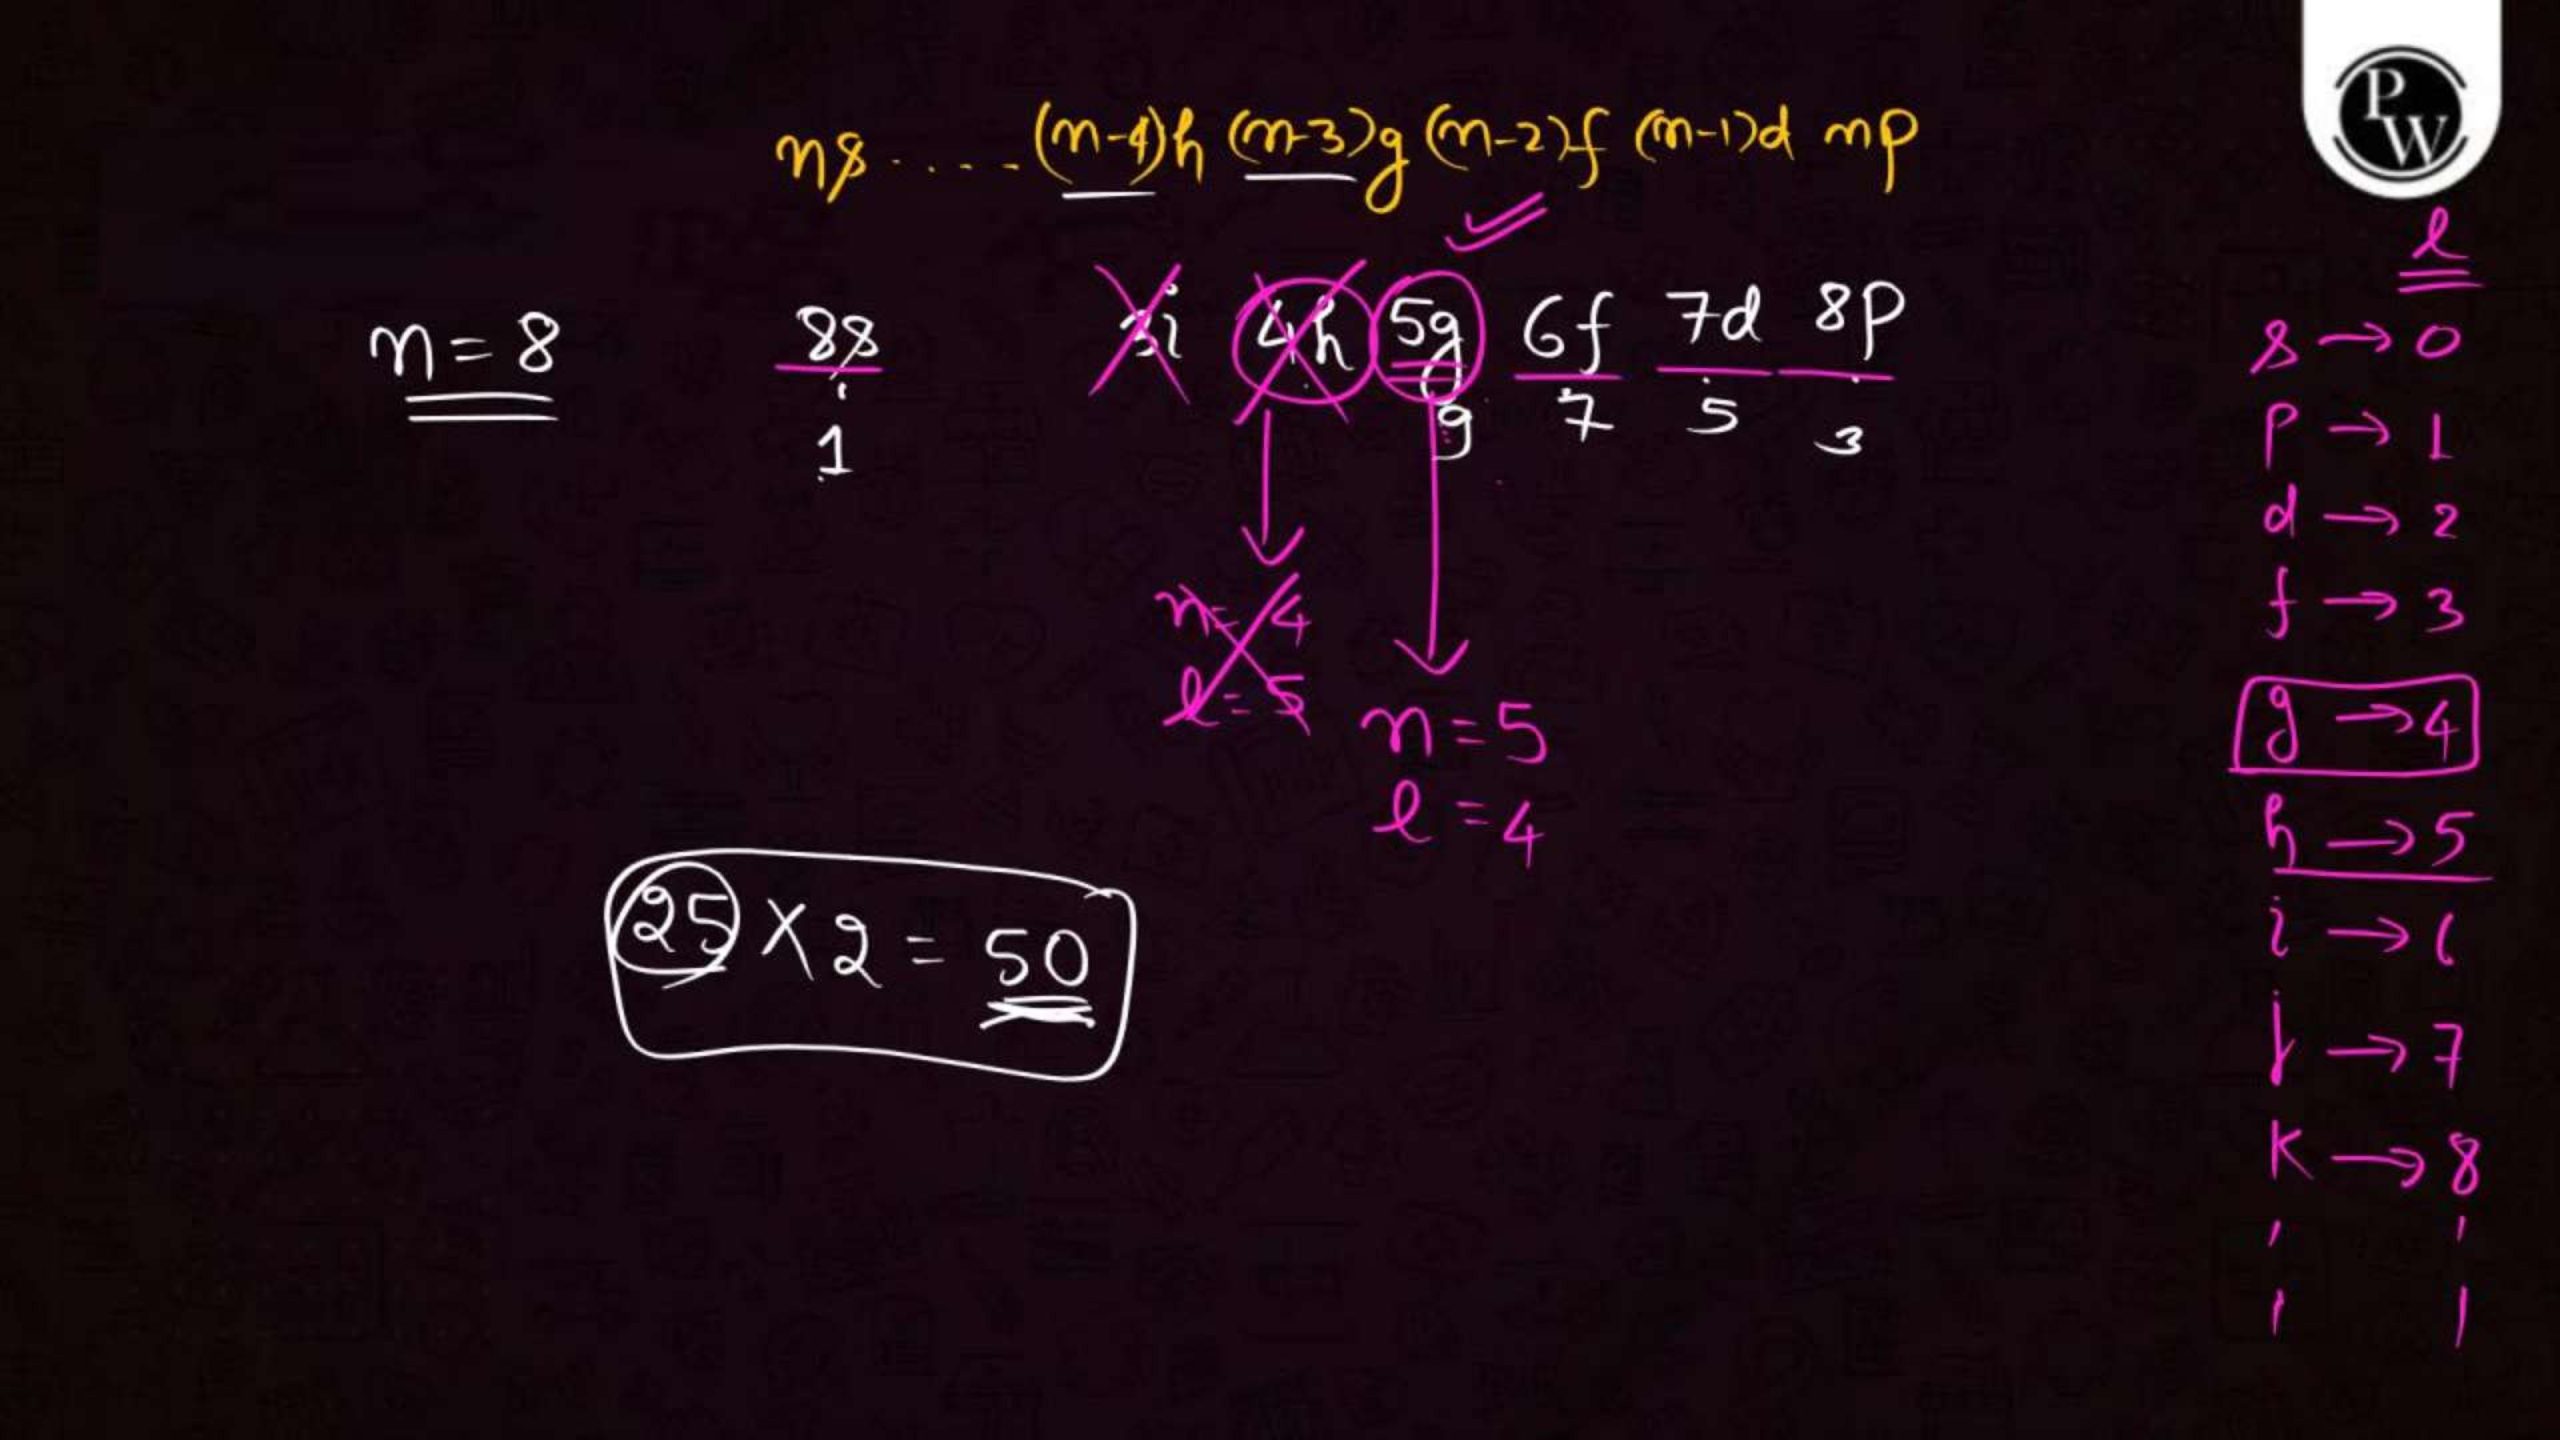 PW
ns ..... (n-4)h (n-3)g (n-2)f (n-1)d np
l
n = 8 8s 3i 4h 5g 6f 7d 8p
1 9 7 5 3
s → 0
p → 1
d → 2
f → 3
g → 4
h → 5
i → 6
j → 7
k → 8
n = 4
l = 5
n = 5
l = 4
25 × 2 = 50